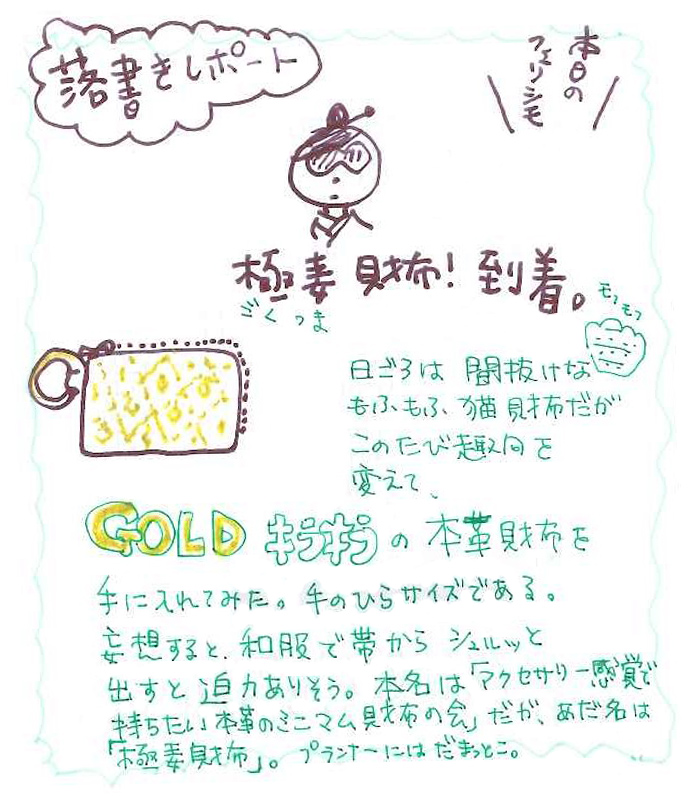 落書きレポート
本日の
フェリシモ
極妻財布!到着。
ごくつま
モフモフ
日ごろは間抜けな
もふもふ猫財布だが
このたび趣向を
変えて、
GOLDキラキラの本革財布を
手に入れてみた。手のひらサイズである。
妄想すると、和服で帯からシュルッと
出すと迫力ありそう。本名は「アクセサリー感覚で
持ちたい本革のミニマム財布の会」だが、あだ名は
「極妻財布」。プランナーにはだまっとこ。